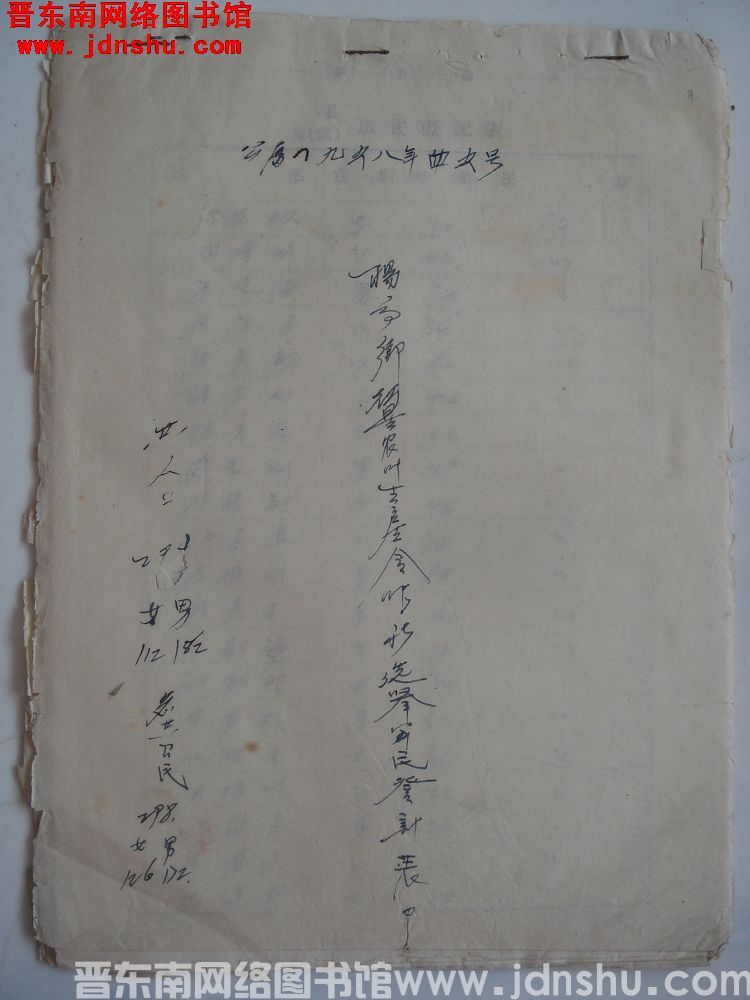 晋东南网络图书馆
www.jdnshu.com
公历一九五八年 五号
杨高乡 农业生产合作社选举公民登记表
共人口
女 男
112 182
总共公民
298.
女 男
126 172.
晋东南网络图书馆www.jdnshu.com